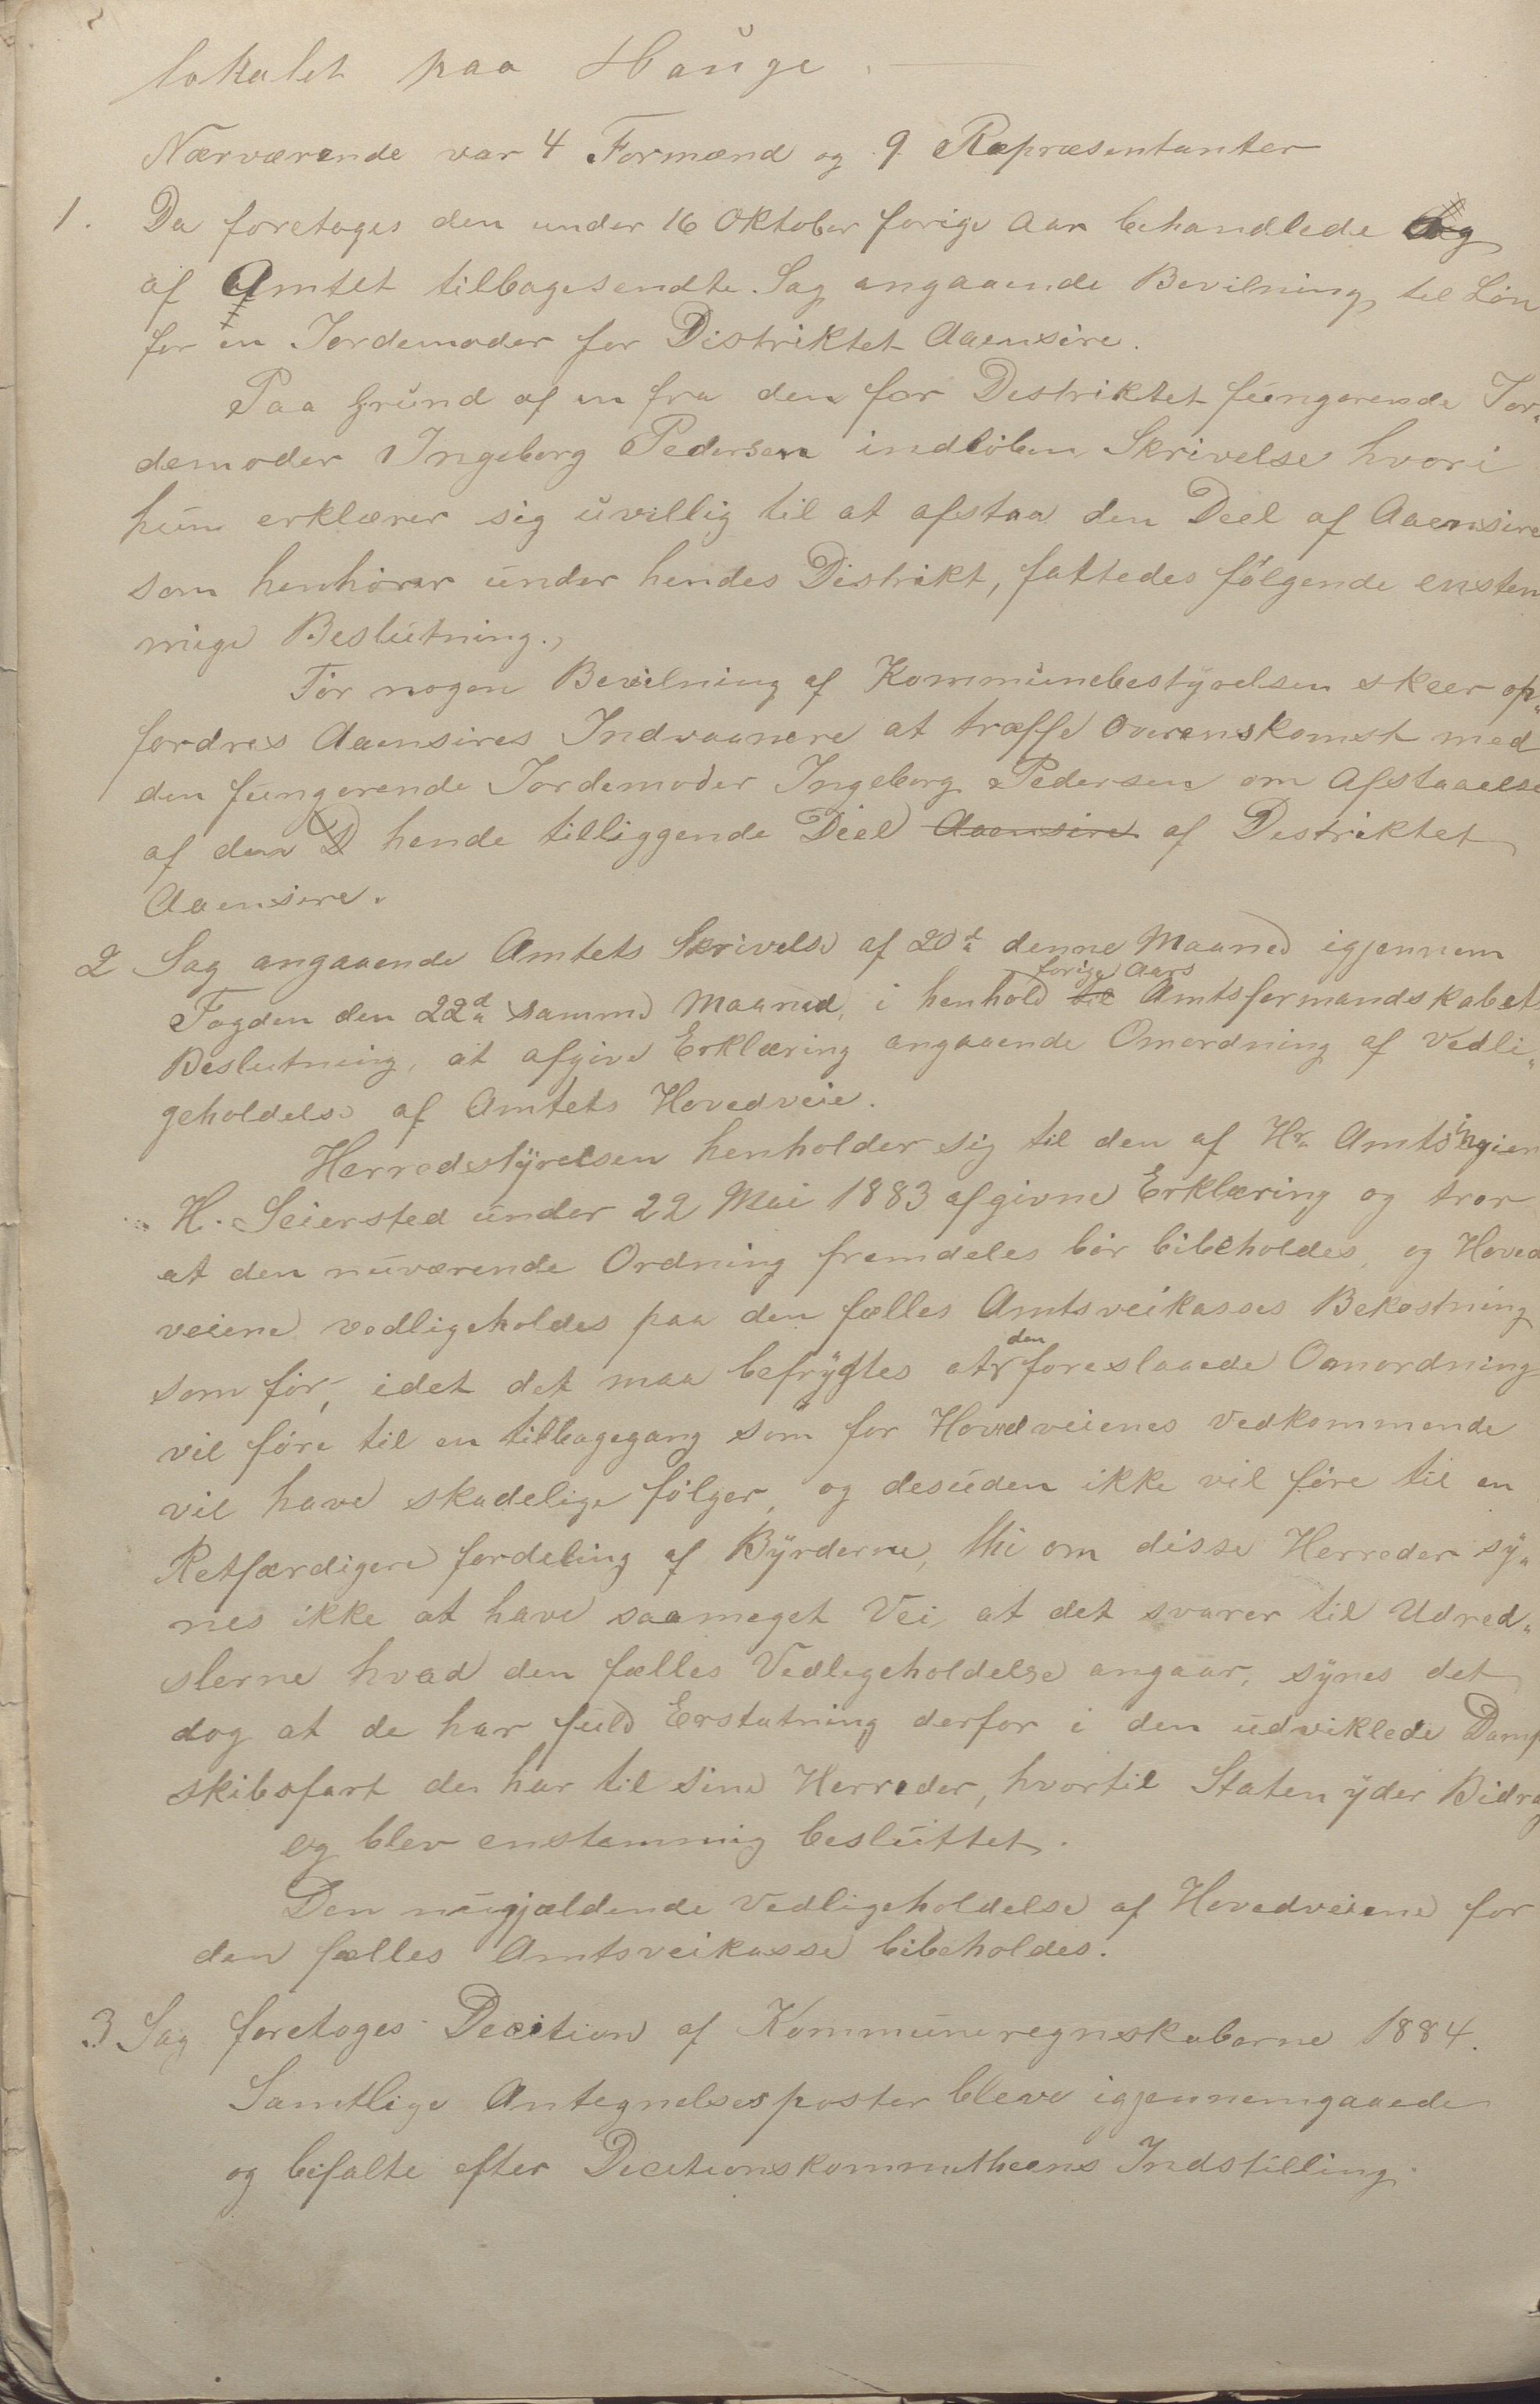 lokalet paa Hauge.
Nærværende var 4 Formænd og 9 Repræsentanter
1. Da foretoges den under 16 Oktober forige Aar behandlede og
af Amtet tilbagesendte Sag angaaende Bevilning til Løn
for en Jordemoder for Distriktet Aaensire.
Paa Grund af en fra den for Distriktet fungerende Jor-
demoder Ingeborg Pedersen indløben Skrivelse hvori
hun erklærer sig uvillig til at afstaa den Deel af Aaensire
som henhører under hendes Distrikt, fattedes følgende enstem
mige Beslutning.,
Før nogen Bevilning af Kommunebestyrelsen skeer op-
fordres Aaensires Indvaanere at træffe Overenskomst med
den fungerende Jordemoder Ingeborg Pedersen om Afstaaelse
af den D hende tilliggende Deel Aaensire af Destriktet
Aaensire.
2 Sag angaaende Amtets Skrivelse af 20d denne Maaned igjennem
forige Aars
Fogden den 22d samme Maaned, i henhold til Amtsformandskabets
Beslutning, at afgive Erklæring angaaende Omordning af Vedli-
geholdelse af Amtets Hovedveie.
Herredsstyrelsen henholder sig til den af Hr Amtsingien
H. Seiersted under 22 Mai 1883 afgivne Erklæring og tror
at den nuværende Ordning fremdeles bør bibeholdes, og Hoved
veiene vedligeholdes paa den fælles Amtsveikasses Bekostning
den
som før, idet det maa befrygtes at foreslaaede Omordning
vil føre til en tilbagegang som for Hovedveienes Vedkommende
vil have skadelige følger, og desuden ikke vil føre til en
Retfærdigere fordeling af Byrderne, thi om disse Herreder sy-
nes ikke at have saameget Vei at det svarer til Udred-
slerne hvad den fælles Vedligeholdelse angaar, synes det
dog at de har fuld Erstatning derfor i den udviklede Damp
skibsfart de har til sine Herreder, hvortil Staten yder Bidrag
og blev enstemmig besluttet.
Den nugjældende Vedligeholdelse af Hovedveiene for
den fælles Amtsveikasse bibeholdes.
3 Sag foretoges Decition af Kommuneregnskaberne 1884.
Samtlige Antegnelsesposter bleve igjennemgaaede
og bifalte efter Decitionskommitheens Indstilling.